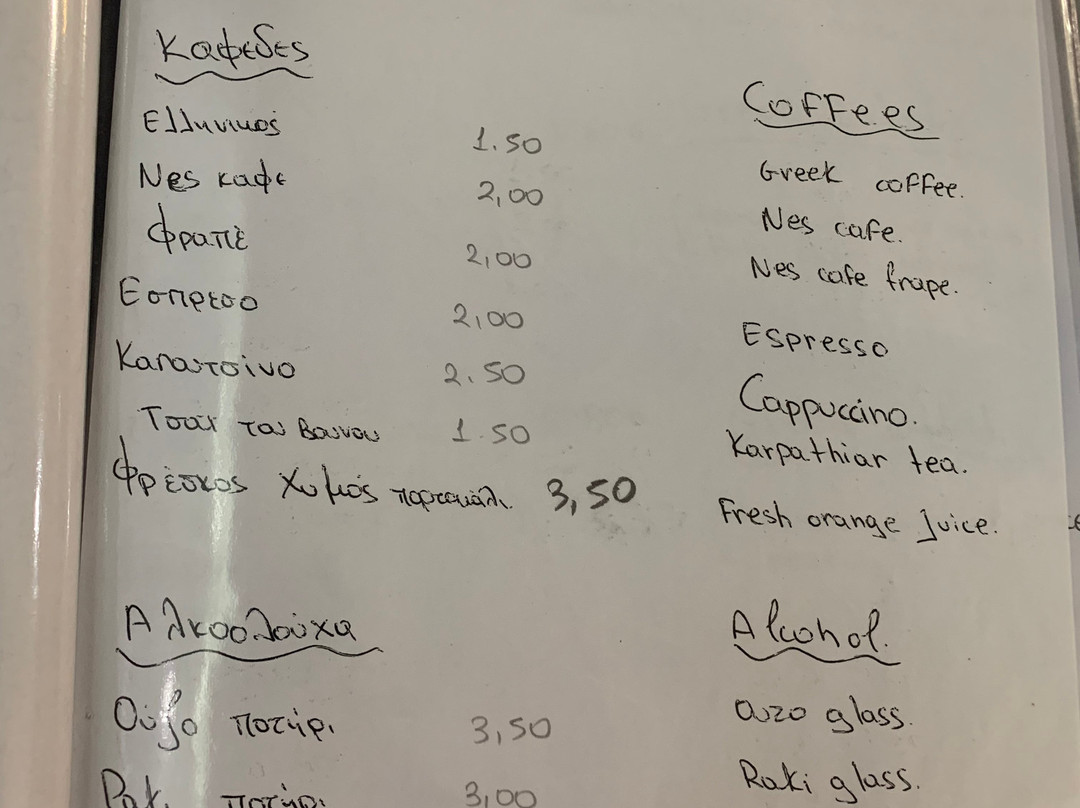 Καφεδες
Ελληνικός 1.50
Νες καφε 2,00
Φραπὲ 2,00
Εσπρεσο 2,00
Καπατσίνο 2.50
Τσαϊ του βουνου 1.50
Φρέσκος χυμός πορτοκάλι. 3,50
Αλκοολούχα
Ούζο ποτήρι 3,50
Ρακι ποτήρι 3,00
Coffees
Greek coffee.
Nes cafe.
Nes cafe frape.
Espresso
Cappuccino.
Karpathiar tea.
Fresh orange juice.
Alcohol.
ouzo glass.
Raki glass.